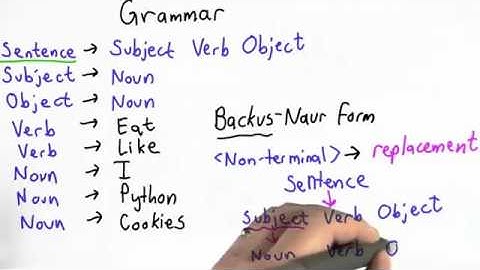 Grammar
Sentence → Subject Verb Object
Subject → Noun
Object → Noun
Verb → Eat
Verb → Like
Noun → I
Noun → Python
Noun → Cookies
Backus-Naur Form
<Non-terminal> → replacement
Sentence
Subject Verb Object
Noun Verb O